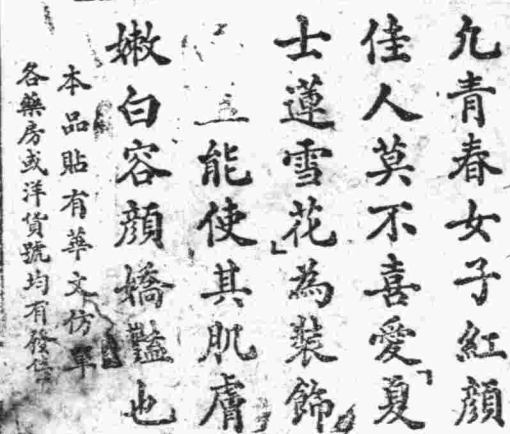 凢青春女子紅顔
佳人莫不喜愛「夏
士蓮雪花」為裝飾
能使其肌膚
嫩白容顔嬌豔也
本品貼有華文仿單
各藥房或洋貨號均有發售